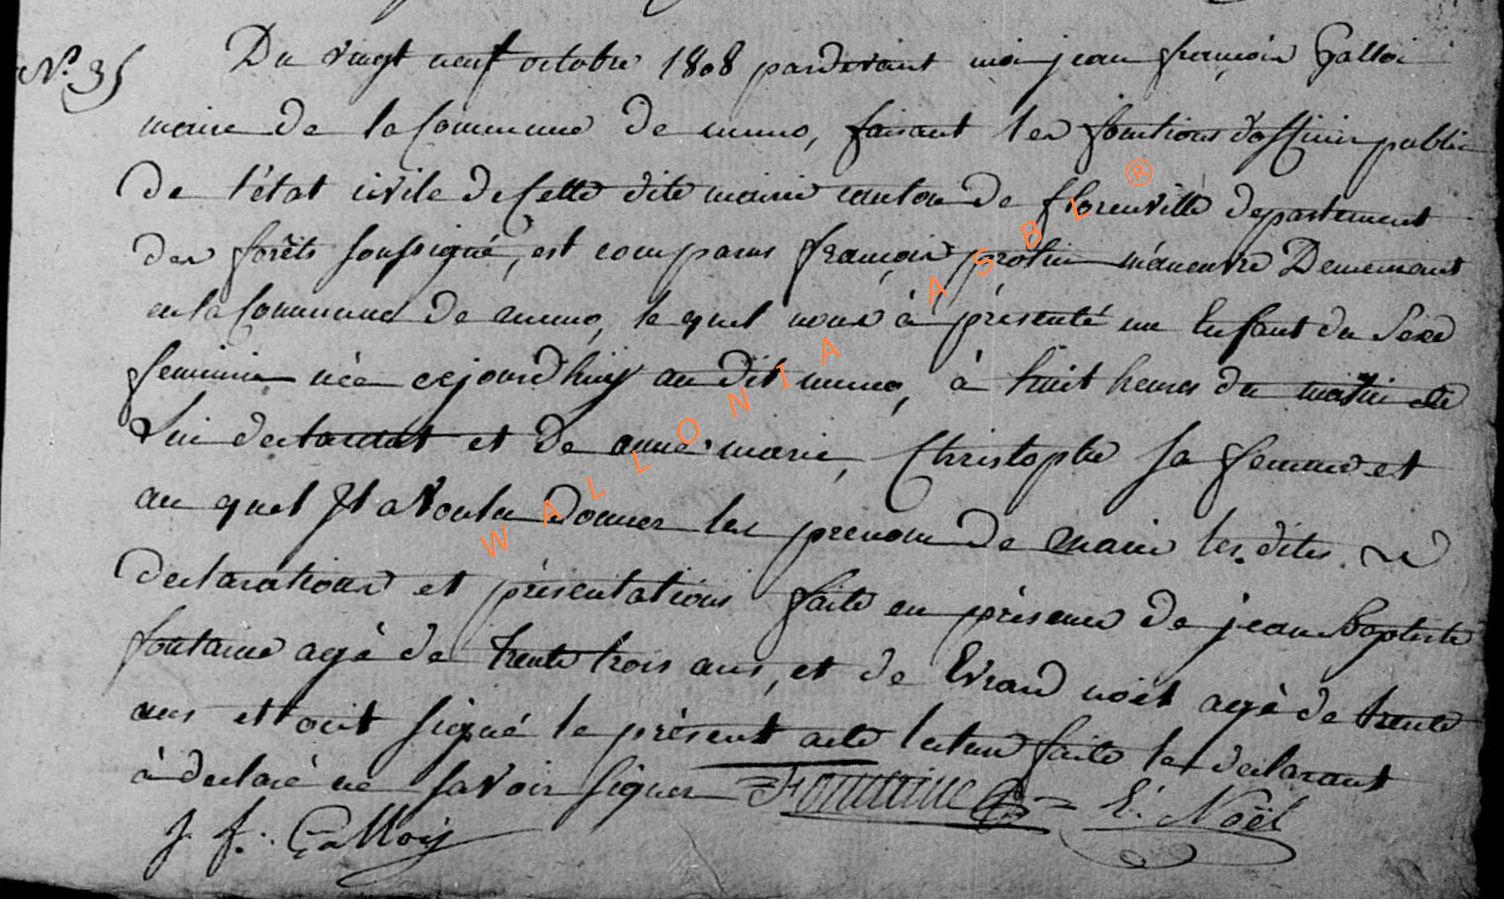 N.° 35
Du vingt neuf octobre 1808 pardevant moi jean françois Galloi
maire de la Commune de muno, faisant les fonctions d'officier public
de l'état civile de Cette dite mairie canton de florenville departement
des forêts soussigné, est comparus françois protin manœuvre Demeurant
en la Commune de muno, le quel nous à présenté un Enfant du Sexe
feminin née cejourdhuy au dit muno, à huit heures du matin de
Lui declarant et de anne marie, Christophe sa femme et
au quel Il a voulu donner les prenom de marie les dites
declarations et présentations faite en présence de jean Baptiste
fontaine agé de trente trois ans, et de Evrard noël agé de trente
ans et ont signé le présent acte lecture faite le declarant
à declaré ne savoir signer Fontaine E. Noël
J. f. Galloiy
WALLONIA ASBL ®